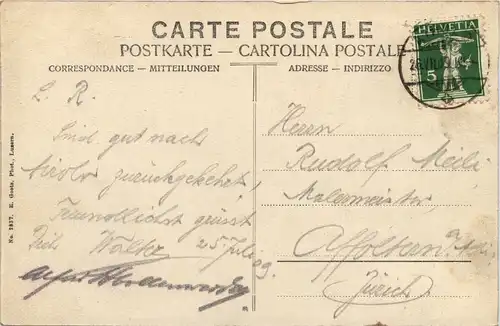 CARTE POSTALE
POSTKARTE — CARTOLINA POSTALE
CORRESPONDANCE — MITTEILUNGEN
ADRESSE — INDIRIZZO
HELVETIA
5
No. 1837. E. Goetz, Phot., Luzern.
L. R.
Sind gut nach
zurückgekehrt,
Freundlichst grüsst
Walter 25 Juli 09.
Herrn
Rudolf Meili
Malermeister
Affoltern a/Albis
Zürich